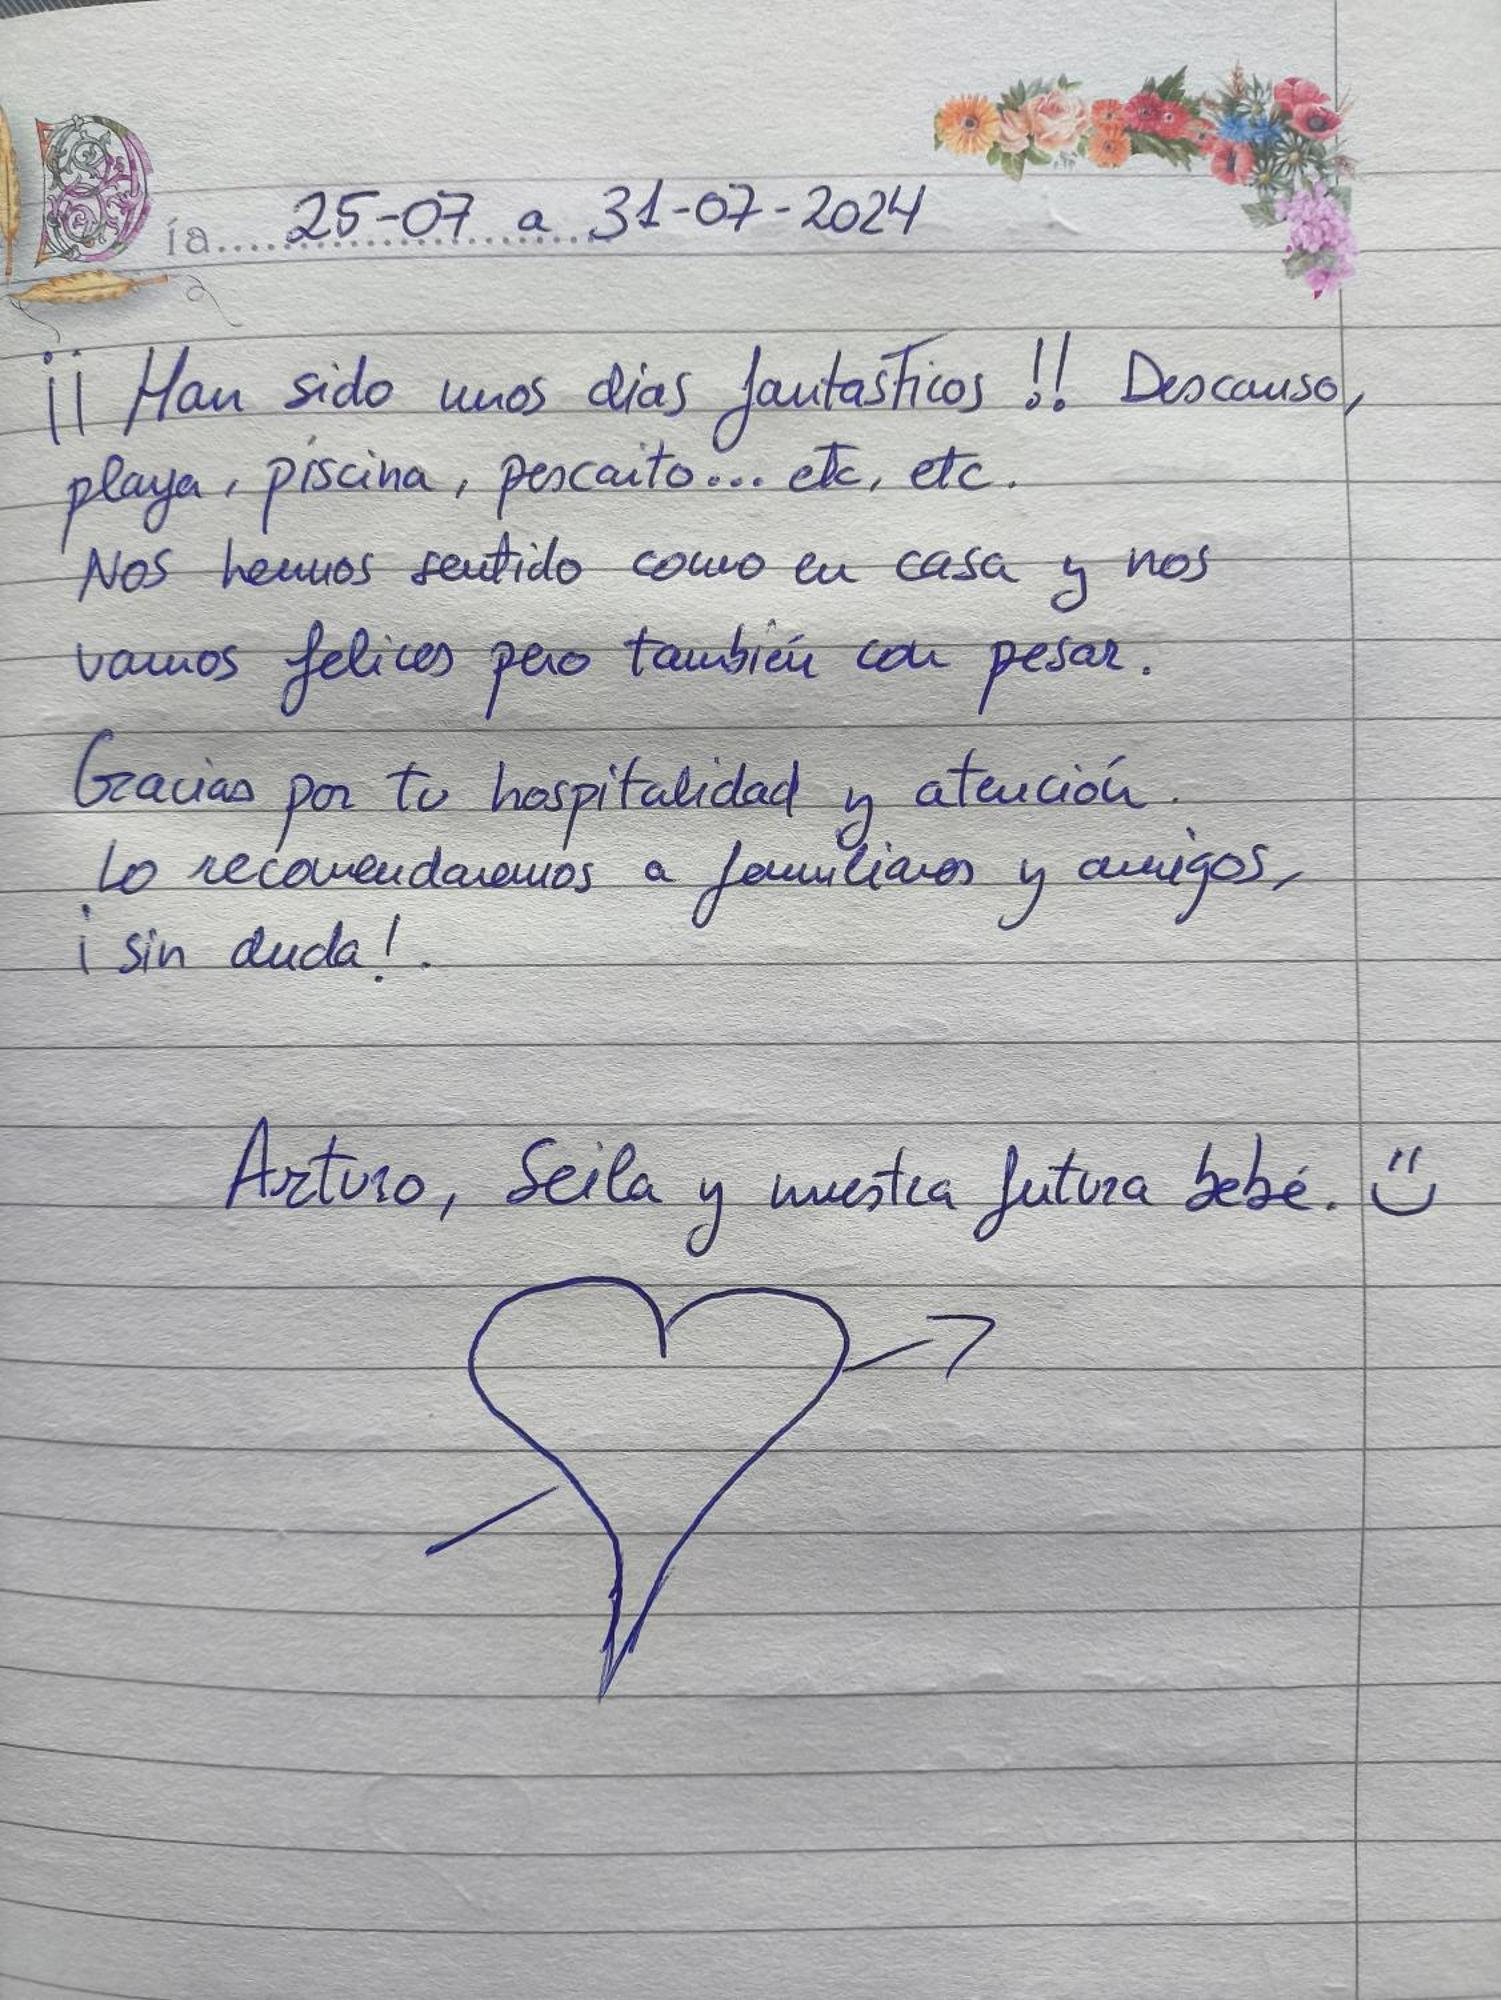 Día...... 25-07 a 31-07-2024
¡¡ Han sido unos días fantásticos !! Descanso,
playa, piscina, pescaito... etc, etc.
Nos hemos sentido como en casa y nos
vamos felices pero también con pesar.
Gracias por tu hospitalidad y atención.
Lo recomendaremos a familiares y amigos,
¡ sin duda!.
Arturo, Seila y nuestra futura bebé. :)